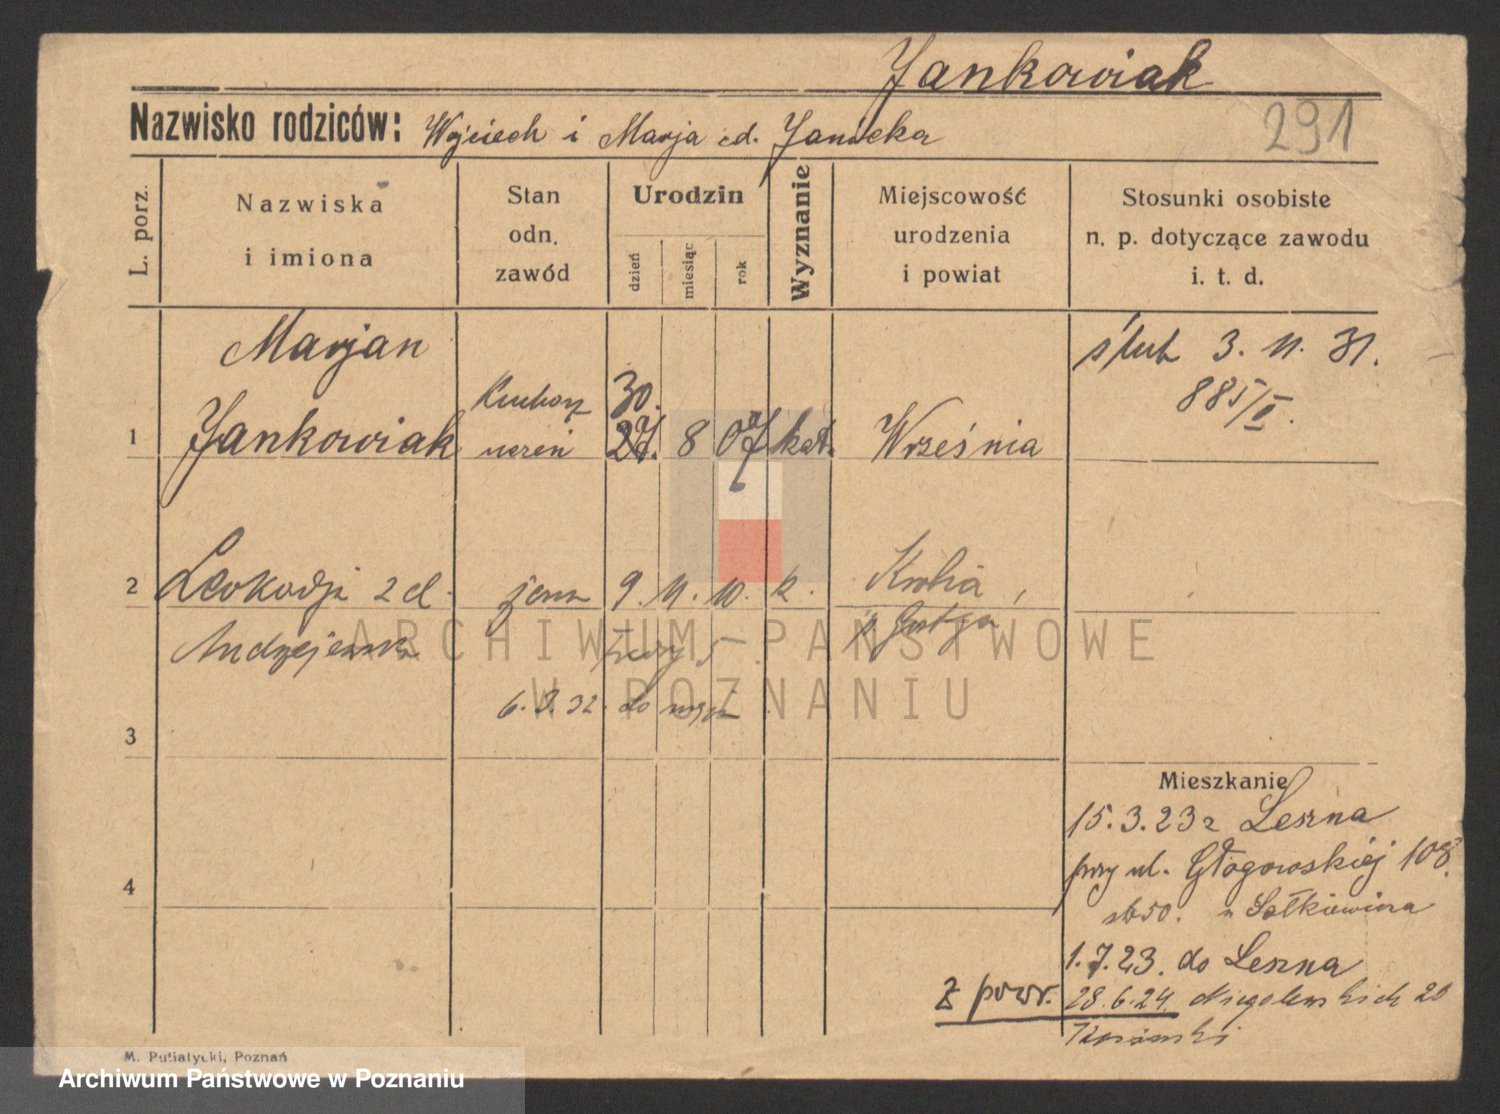 Jankowiak
Nazwisko rodziców: Wojciech i Marja zd. Janicka
291
L. porz.
Nazwiska
i imiona
Stan
odn.
zawód
Urodzin
dzień
miesiąc
rok
Wyznanie
Miejscowość
urodzenia
i powiat
Stosunki osobiste
n. p. dotyczące zawodu
i. t. d.
Marjan
ślub 3. 11. 31.
885/II.
30.
1 Jankowiak uczeń 27. 8 07 kat. Września
2 Leokadja zd. żona 9. 11. 10. k. Krobia,
Andrzejewska p. Gostyń
6. 32. do męża
3
Mieszkanie
15.3.23 z Leszna
przy ul. Głogowskiej 108.
4
u Sołkiewicza
1.7.23. do Leszna
z powr. 28.6.24. Niegolewskich 20
M. Putiatycki, Poznań
ARCHIWUM PAŃSTWOWE
W POZNANIU
Archiwum Państwowe w Poznaniu